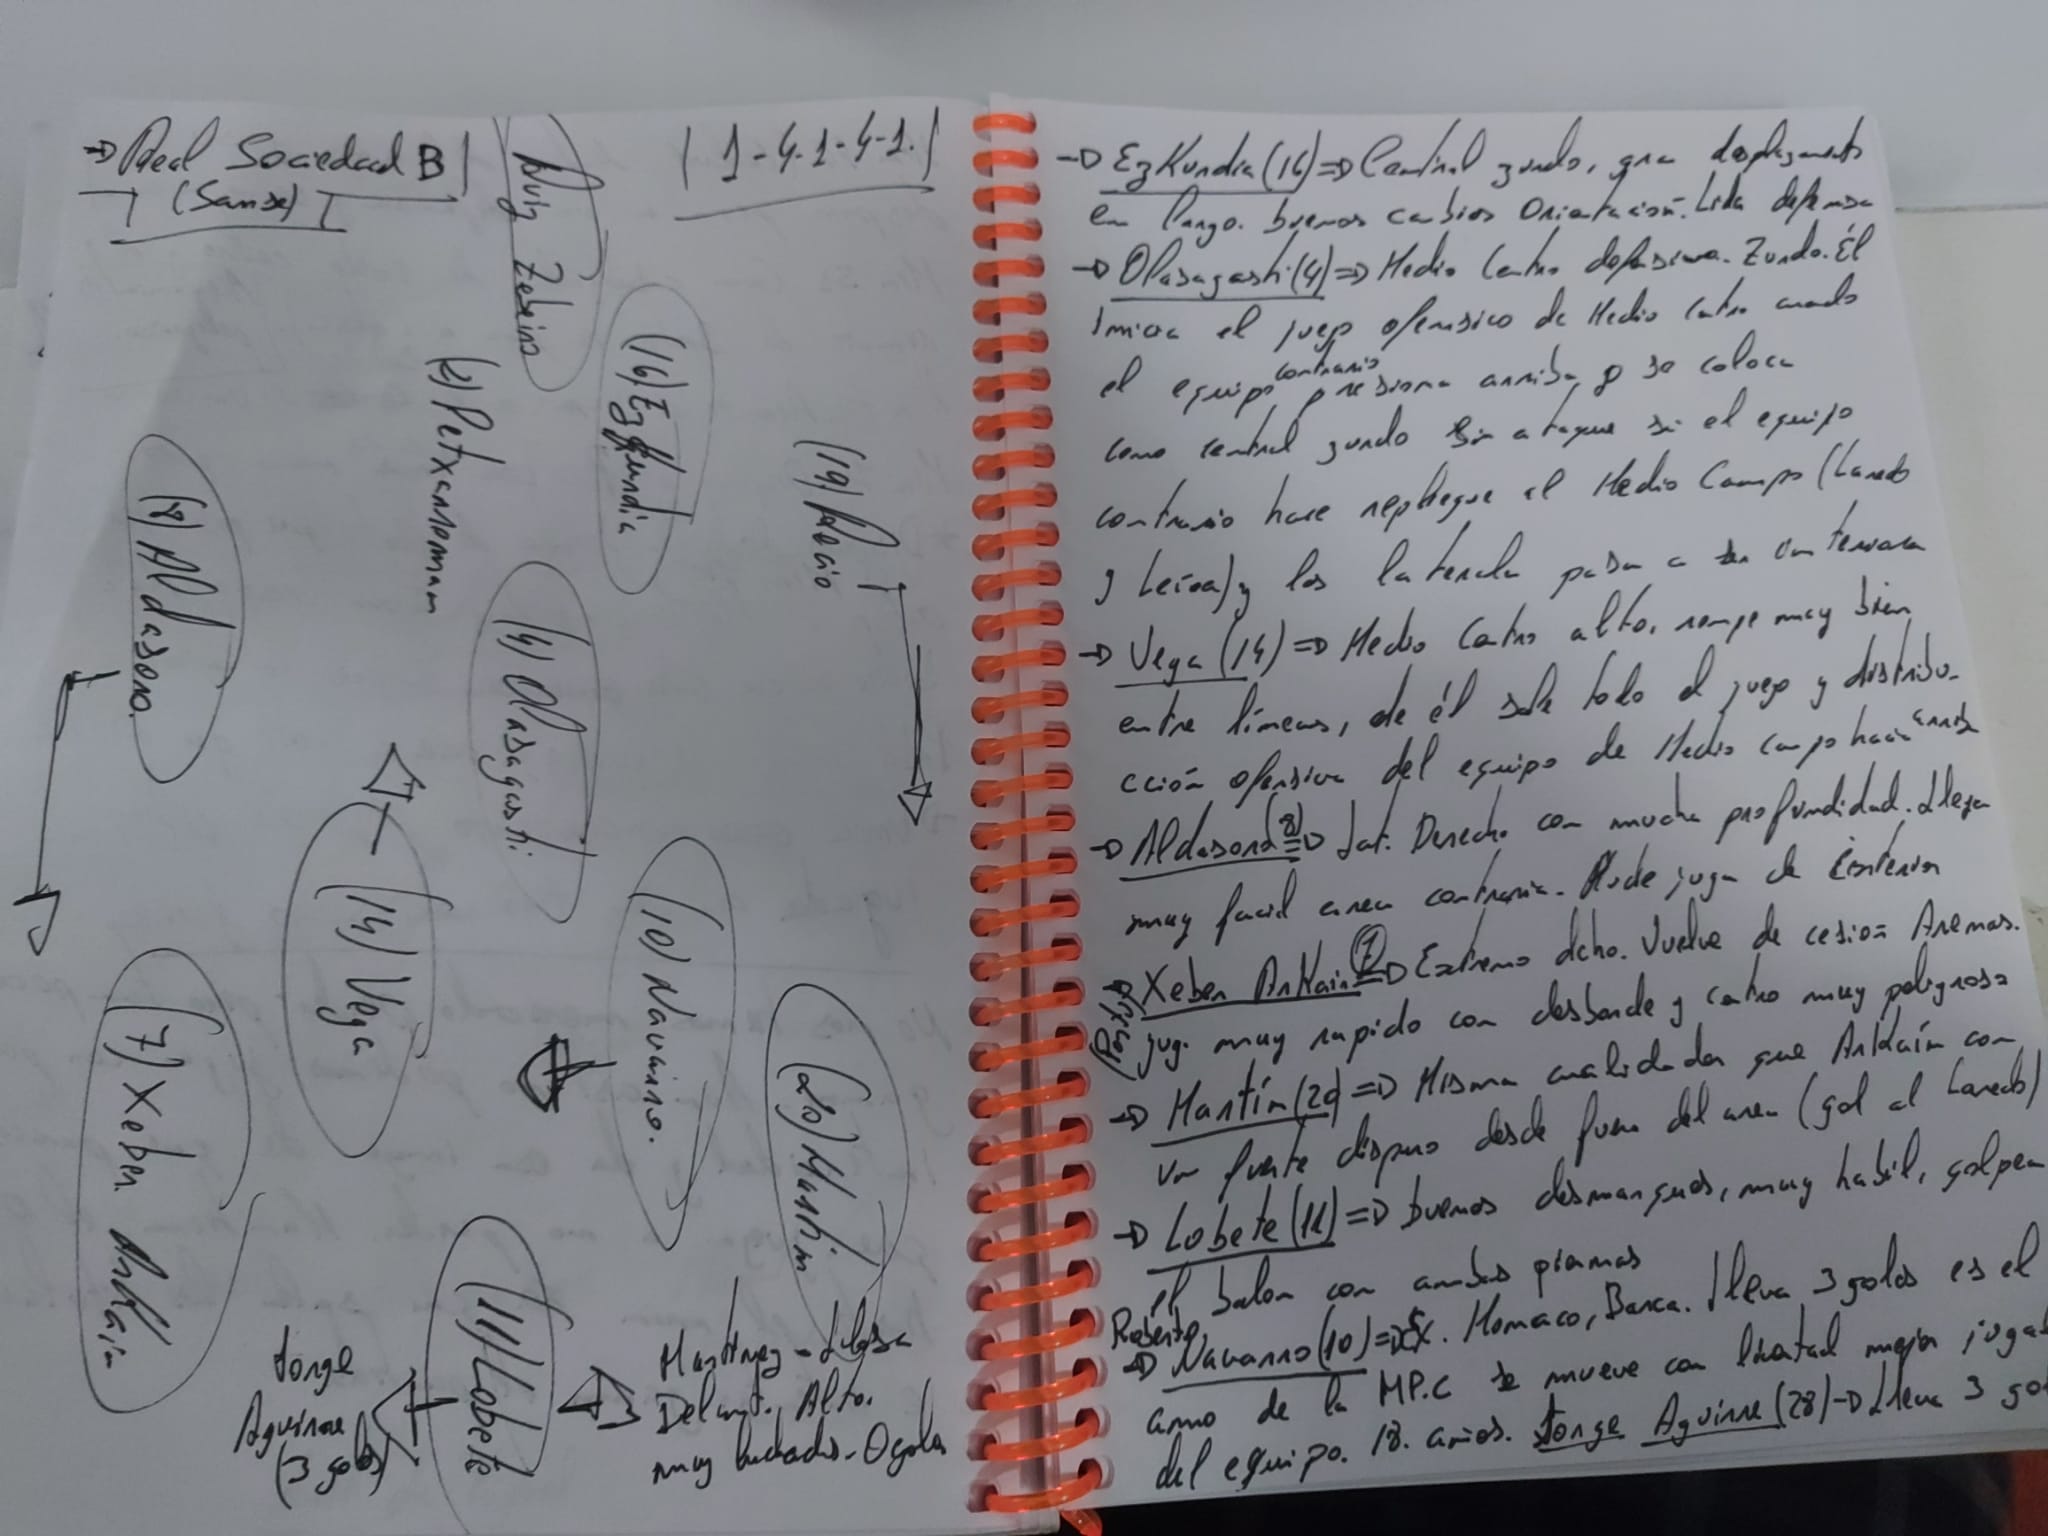 → Real Sociedad B
(Sanse)
1-4-1-4-1.
Ruiz Zebeiro
(16) Ezkundia
Petxarroman
(19) Recio
(8) Aldasoro.
(4) Olasagasti.
(14) Vega
(10) Navarro.
(7) Xeber Arkain
(20) Martin
(11) Lobete
Jorge
Aguirre
(3 goles)
Martinez - Losa
Delant. Alto.
muy luchador - 0 goles
→ Ezkundia (16) ⇒ Central zurdo, gran desplazamiento
en largo. buenos cambios Orientación. Lida defensa
→ Olasagasti (4) ⇒ Medio Centro defensivo. Zurdo. Él
Inicia el juego ofensivo de Medio Centro cuando
el equipo contrario presiona arriba, o se coloca
como central zurdo en ataque si el equipo
contrario hace repliegue al Medio Campo (Laredo
y Leioa) y los laterales pasan a
→ Vega (14) ⇒ Medio Centro alto, rompe muy bien
entre líneas, de él sale todo el juego y distribu-
cción ofensiva del equipo de Medio campo hacia arriba
→ Aldasoro (8) ⇒ Lat. Derecho con mucha profundidad. Llega
muy facil area contraria. Puede jugar de Exterior
→ Xeber Arkain (7) ⇒ Extremo dcho. Vuelve de cesión Arenas.
jug. muy rapido con desborde y centro muy peligroso
→ Martín (20) ⇒ Misma cualidades que Arkaín con
un fuerte disparo desde fuera del area (gol al Laredo)
→ Lobete (11) ⇒ buenos desmarques, muy habil, golpea
el balon con ambas piernas
Roberto,
→ Navarro (10) ⇒ EX. Monaco, Barca. Lleva 3 goles es el
amo de la MP.C se mueve con libertad mejor jugad
del equipo. 18. años. Jorge Aguirre (28) → Lleva 3 gol